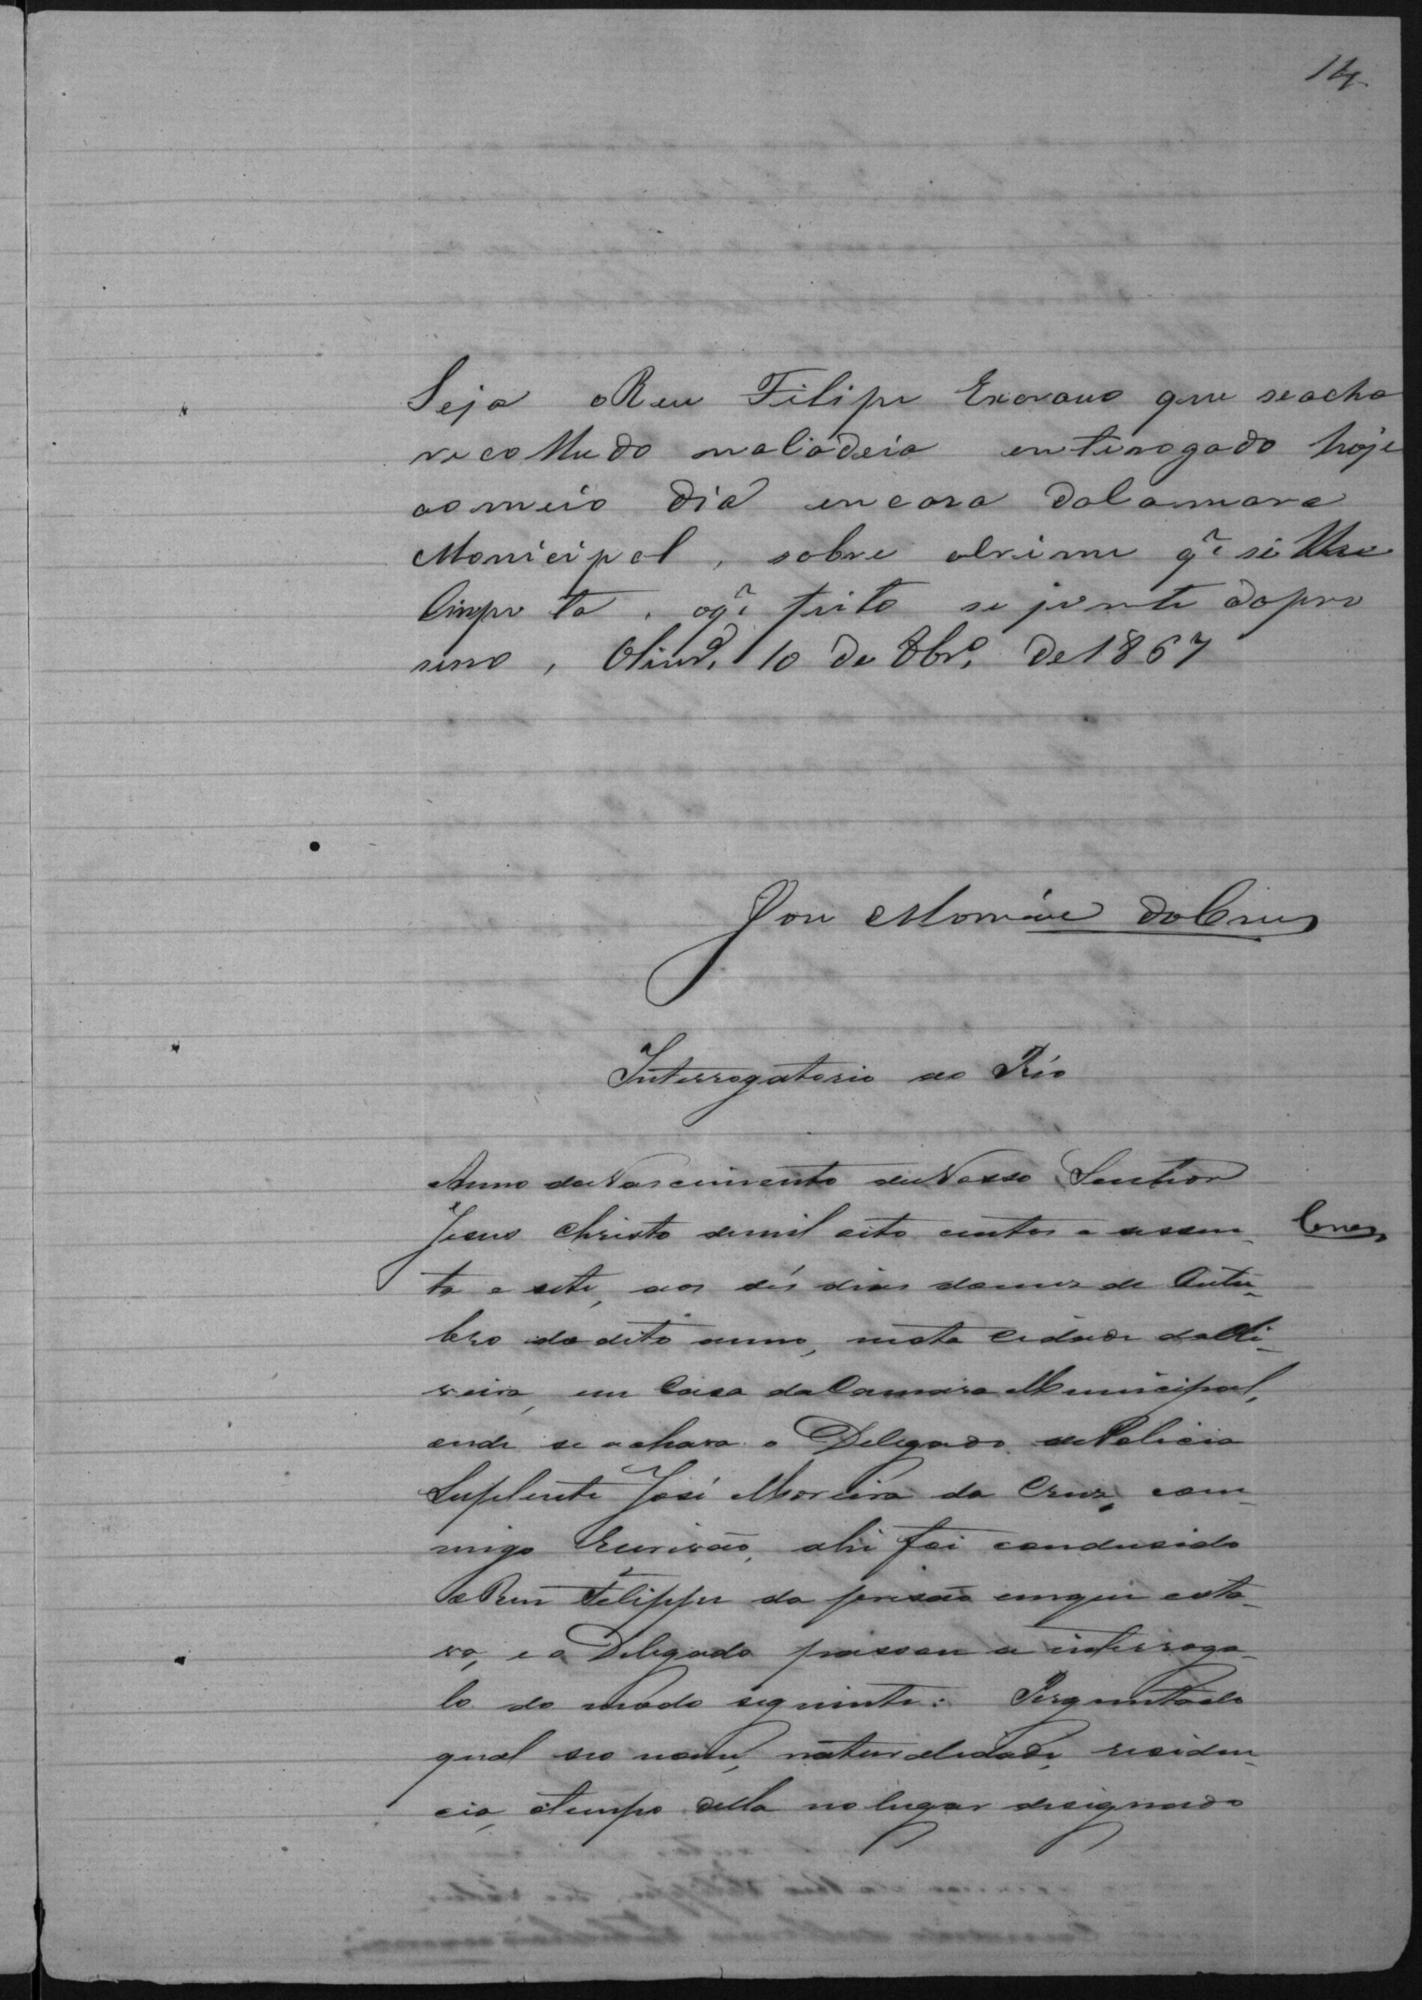 14
Seja o Reu Filipe Escravo que se acha
recolhido na Cadeia enterogado hoje
ao meio dia em casa da Camara
Monicipal, sobre o crime q.e se lhe
Imputa, o q.e feito se junte ao pro
seso, Oliv.a 10 de 8br.o de 1867
José Moreira da Cruz
Interrogatorio ao Réo
Anno do Nascimento de Nosso Senhor
Jesus Christo de mil oito centos e sessen- Cruz
ta e sete, aos dés dias do mez de Outu-
bro do dito anno, nesta Cidade da Oli-
veira, em Casa da Camara Municipal,
onde se achava o Delegado de Policia
Suplente José Moreira da Cruz, com-
migo Escrivão, ahi foi condusido
o Reu Felippe da prisão em que esta-
va, e o Delegado passou a interroga-
lo do modo seguinte: Perguntado
qual seo nome, naturalidade, residen-
cia, e tempo della no lugar designado